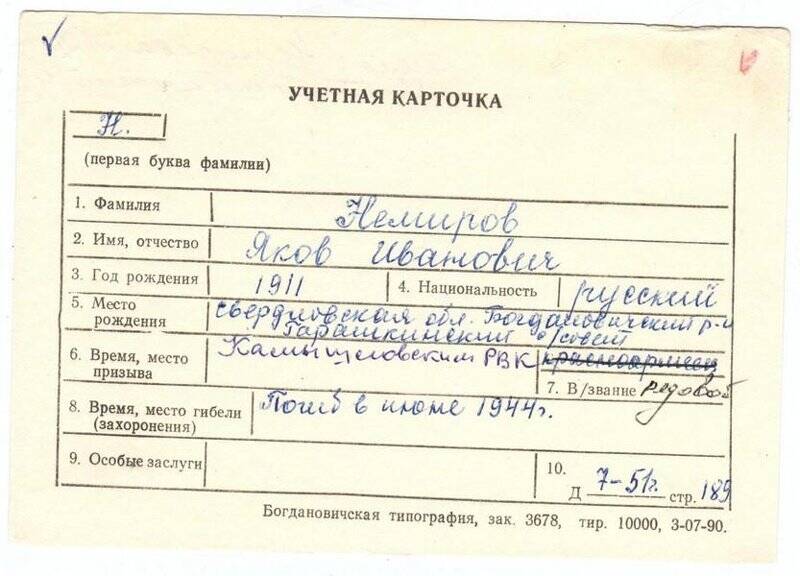 УЧЕТНАЯ КАРТОЧКА
Н.
(первая буква фамилии)
1. Фамилия Немиров
2. Имя, отчество Яков Иванович
3. Год рождения 1911 4. Национальность русский
5. Место рождения Свердловская обл. Богдановичский р-н
Гарашкинский с/совет
6. Время, место призыва Камышловским РВК красноармеец
7. В/звание рядовой
8. Время, место гибели (захоронения) Погиб в июне 1944г.
9. Особые заслуги
10.
Д 7-51г. стр. 189
Богдановичская типография, зак. 3678, тир. 10000, 3-07-90.